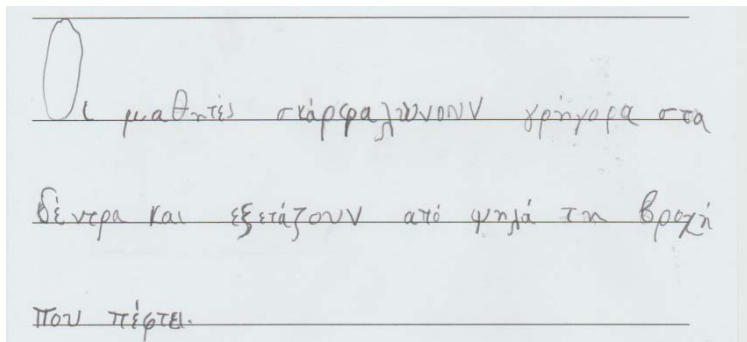 Οι μαθητές σκάρφαλώνουν γρήγορα στα
δέντρα και εξετάζουν από ψηλά τη βροχή
που πέφτει.